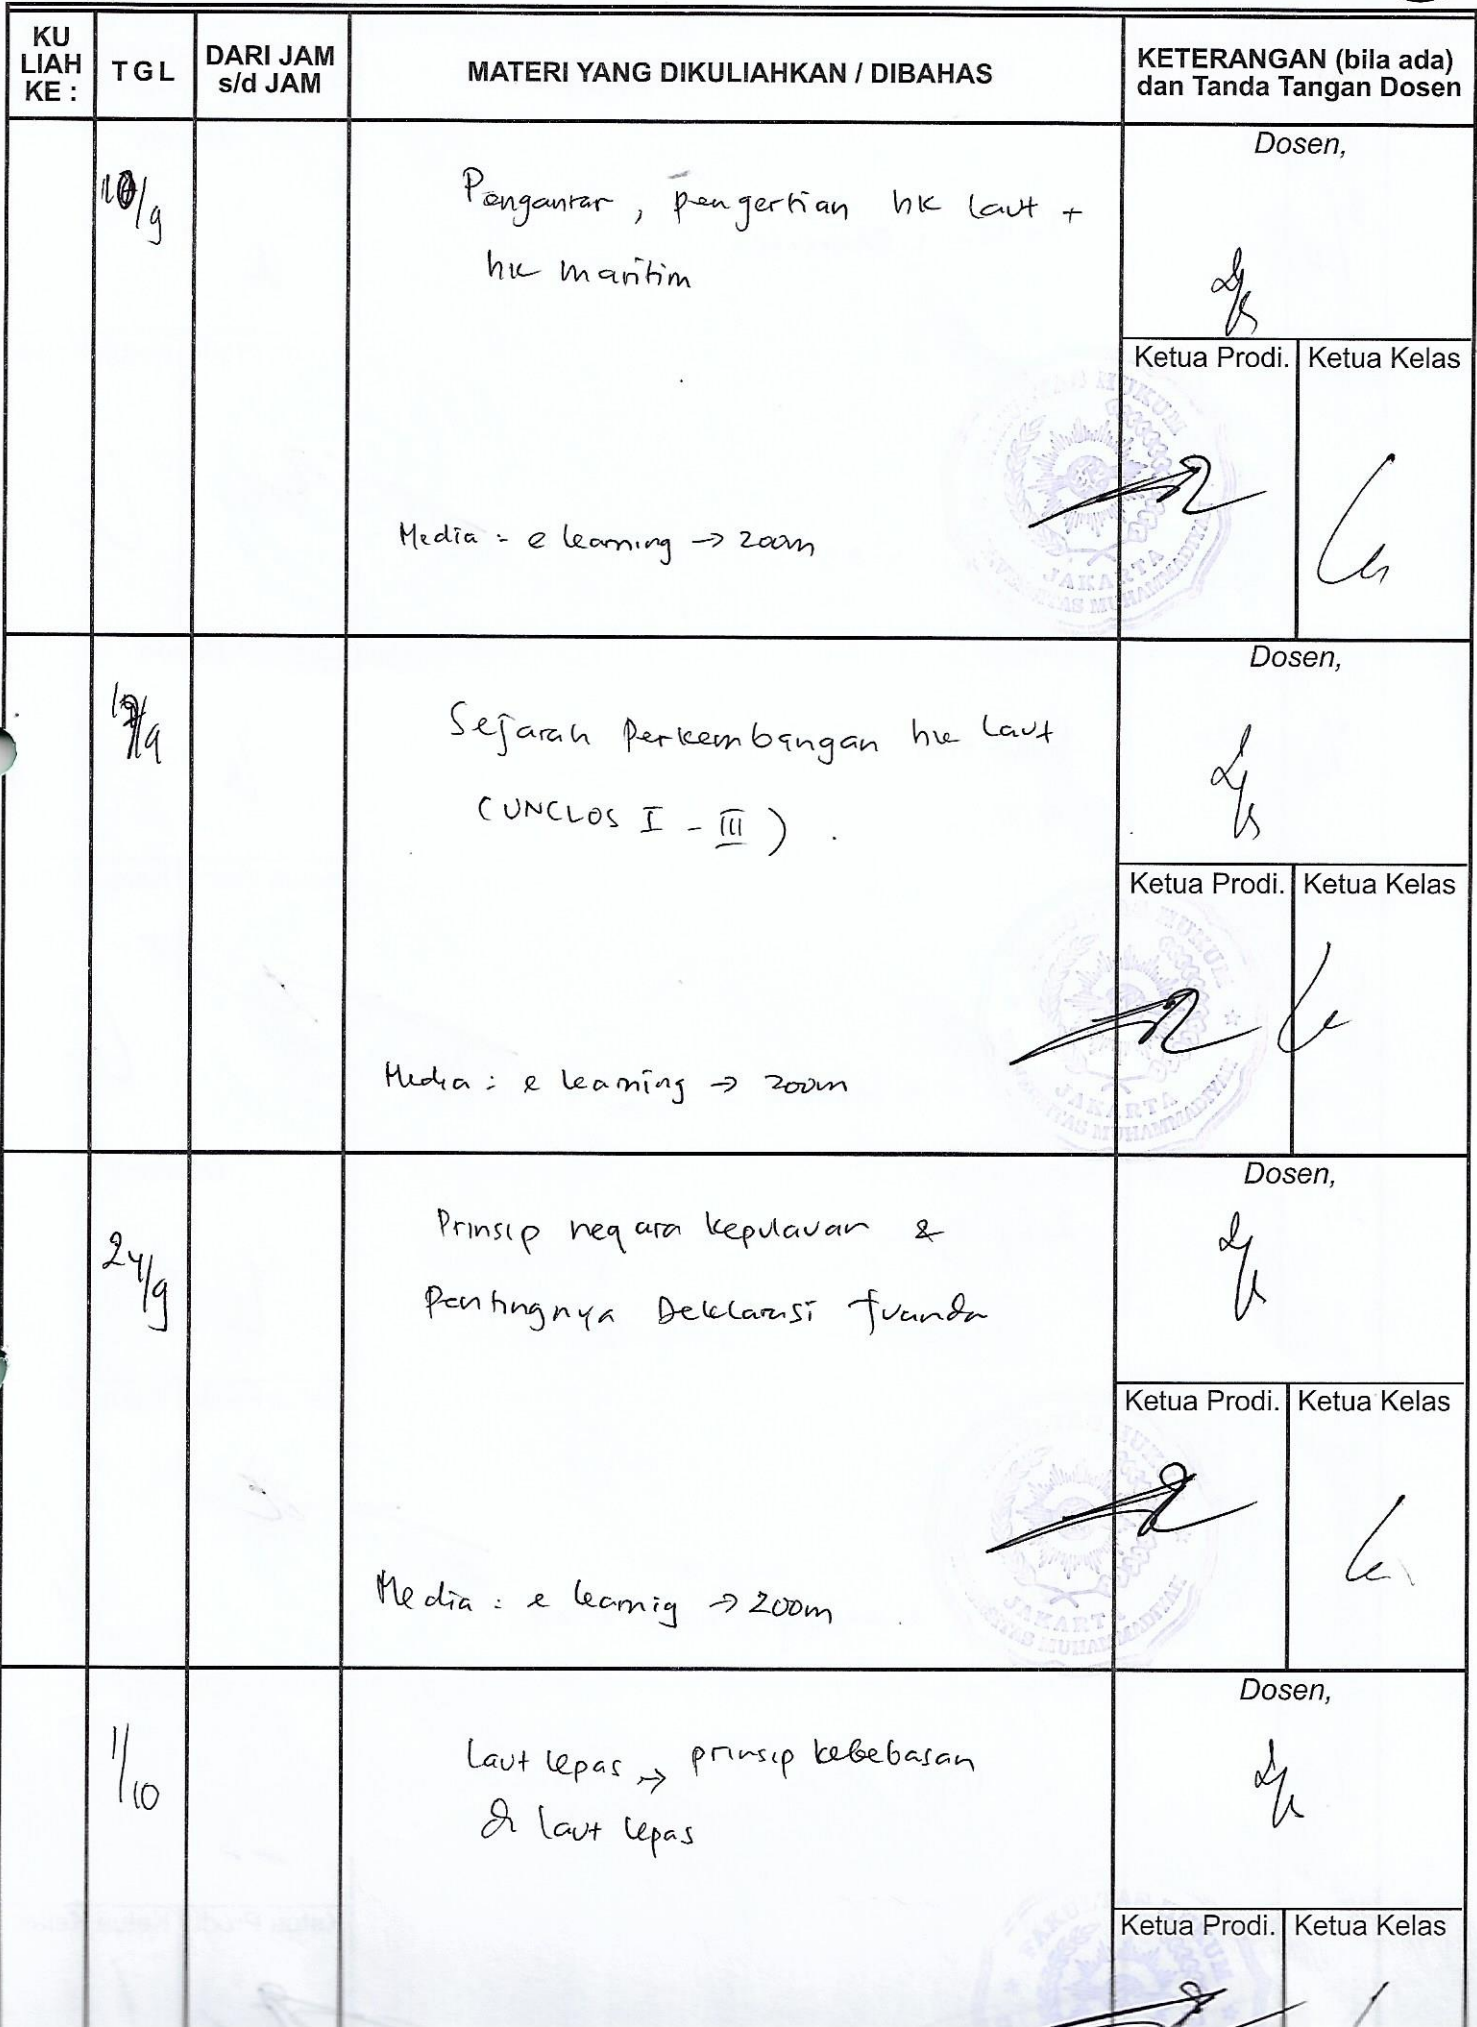 KU
LIAH
KE :
TGL
DARI JAM
s/d JAM
MATERI YANG DIKULIAHKAN / DIBAHAS
KETERANGAN (bila ada)
dan Tanda Tangan Dosen
/9
Pengantar, pengertian hk laut +
hk maritim
Media : e learning → zoom
Dosen,
Ketua Prodi.
Ketua Kelas
HUKUM
JAKARTA
MUHAMMADIYAH
/9
Sejarah Perkembangan hk laut
(UNCLOS I - III)
Media : e learning → zoom
Dosen,
Ketua Prodi.
Ketua Kelas
HUKUM
JAKARTA
MUHAMMADIYAH
24/9
Prinsip negara kepulauan &
pentingnya Deklarasi Juanda
Media : e learnig → zoom
Dosen,
Ketua Prodi.
Ketua Kelas
JAKARTA
MUHAMMADIYAH
1/10
Laut lepas → prinsip kebebasan
di laut lepas
Dosen,
Ketua Prodi.
Ketua Kelas